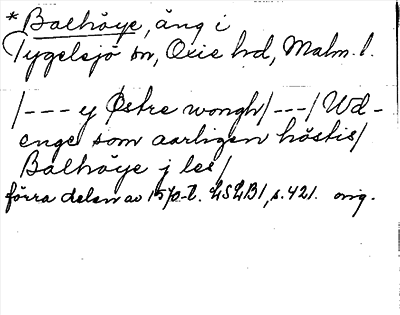 * Balhöye, äng i
Tygelsjö sn, Oxie hd, Malm. l.
/--- y Østre wongh/---/ Ud-
enge som aarligen höstis/
Balhöye j les/
förra delen av 15/0-t. LSLB1, s. 421. orig.